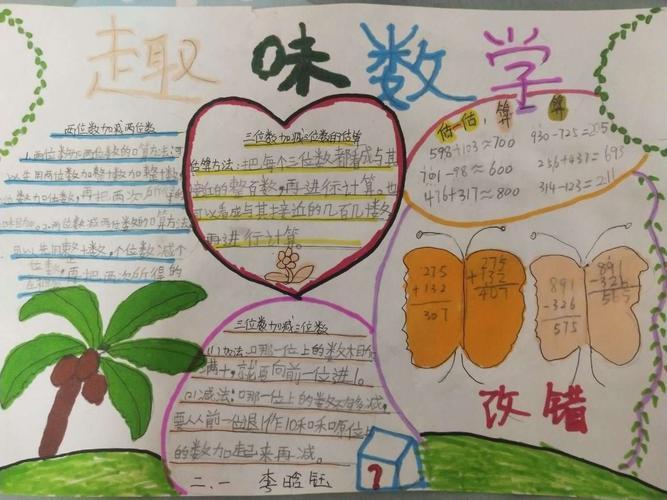 趣味数学
两位数加减两位数
1.两位数加两位数的口算方法:可
以先用两位数加整十数加整十数,
再把两次所得的
2.两位数减两位数的口算方法
可以先用整十数,个位数减个
位数,再把两次所得的
三位数加减三位数的估算
估算方法:把每个三位数都看成与其
接近的整百数,再进行计算。也
可以看成与其接近的几百几十数
再进行计算。
估一估,算一算
598+103≈700
701-98≈600
476+317≈800
930-725=205
256+437=693
314-123=211
275
+132
307
275
+132
407
891
-326
575
891
-326
565
改错
三位数加减三位数
(1)加法:哪一位上的数相加
满十,就要向前一位进1。
(2)减法:哪一位上的数不够减,
要从前一位退1作10和原位
的数加起来再减。
二、一 李晗钰
?